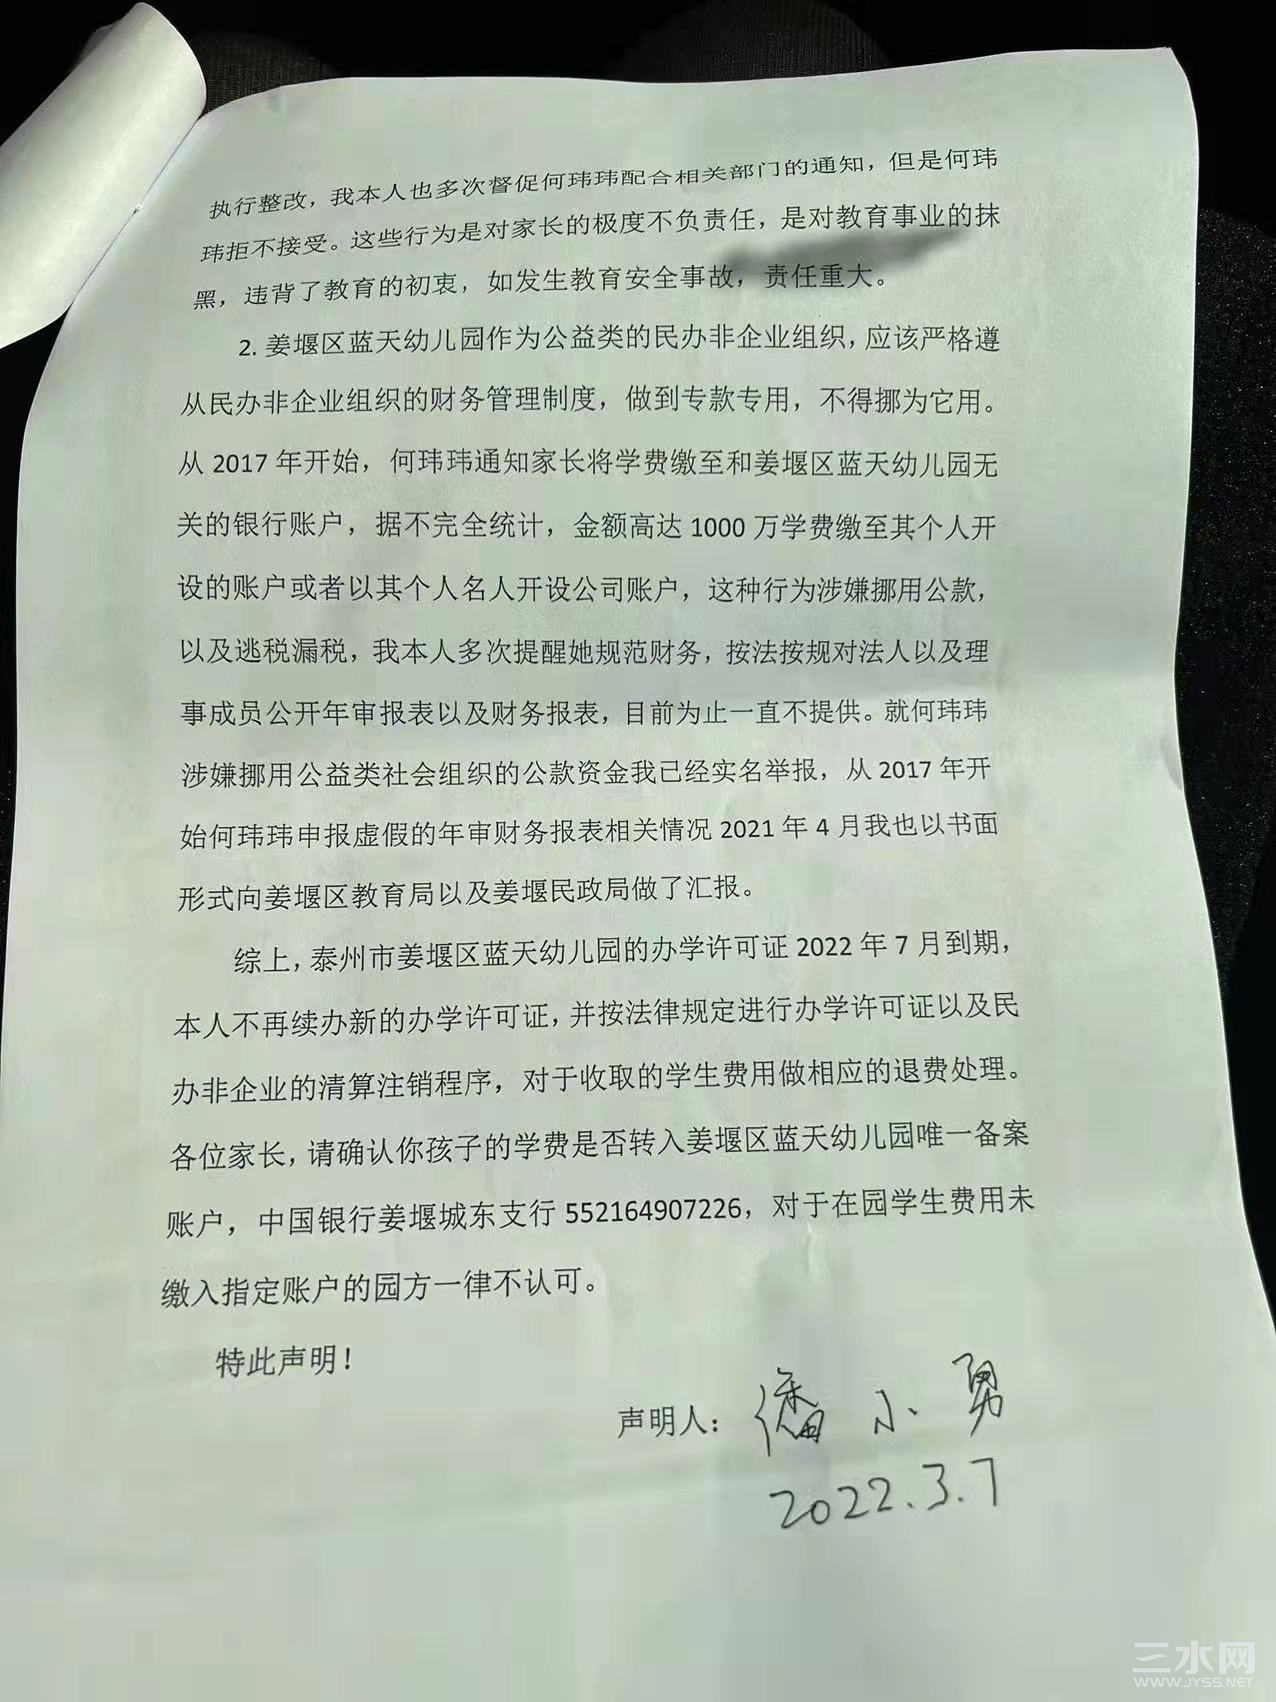 执行整改，我本人也多次督促何玮玮配合相关部门的通知，但是何玮
玮拒不接受。这些行为是对家长的极度不负责任，是对教育事业的抹
黑，违背了教育的初衷，如发生教育安全事故，责任重大。
2. 姜堰区蓝天幼儿园作为公益类的民办非企业组织，应该严格遵
从民办非企业组织的财务管理制度，做到专款专用，不得挪为它用。
从 2017 年开始，何玮玮通知家长将学费缴至和姜堰区蓝天幼儿园无
关的银行账户，据不完全统计，金额高达 1000 万学费缴至其个人开
设的账户或者以其个人名人开设公司账户，这种行为涉嫌挪用公款，
以及逃税漏税，我本人多次提醒她规范财务，按法按规对法人以及理
事成员公开年审报表以及财务报表，目前为止一直不提供。就何玮玮
涉嫌挪用公益类社会组织的公款资金我已经实名举报，从 2017 年开
始何玮玮申报虚假的年审财务报表相关情况 2021 年 4 月我也以书面
形式向姜堰区教育局以及姜堰民政局做了汇报。
综上，泰州市姜堰区蓝天幼儿园的办学许可证 2022 年 7 月到期，
本人不再续办新的办学许可证，并按法律规定进行办学许可证以及民
办非企业的清算注销程序，对于收取的学生费用做相应的退费处理。
各位家长，请确认你孩子的学费是否转入姜堰区蓝天幼儿园唯一备案
账户，中国银行姜堰城东支行 552164907226，对于在园学生费用未
缴入指定账户的园方一律不认可。
特此声明！
声明人：潘小勇
2022.3.7
三水网
WWW.JYSS.NET